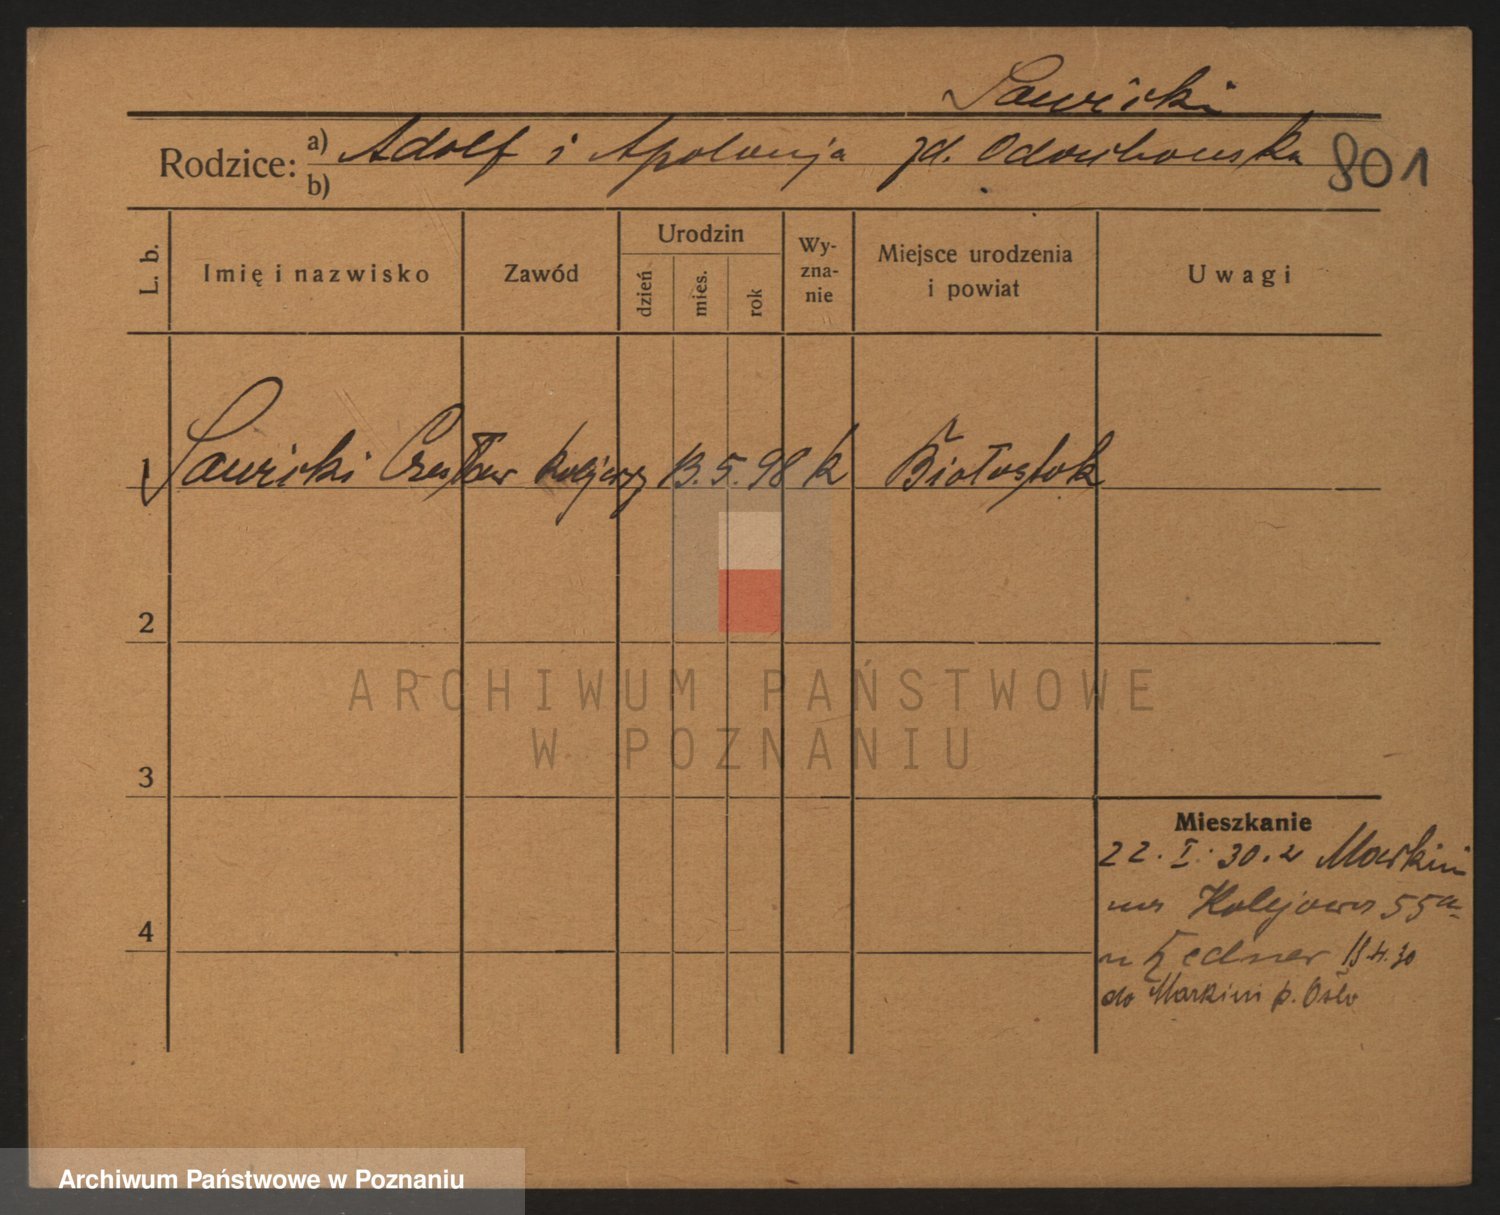 Sawicki
Rodzice: a) Adolf i Apolonja zd.
b)
801
L. b.
Imię i nazwisko
Zawód
Urodzin
dzień
mies.
rok
Wy-
zna-
nie
Miejsce urodzenia
i powiat
Uwagi
1 Sawicki Czesław 13. 5. 98 k Białostok
2
ARCHIWUM PAŃSTWOWE
W POZNANIU
3
Mieszkanie
22. I. 30. z
na Kolejowa 55a
4
u 18.4.30
do p.
Archiwum Państwowe w Poznaniu